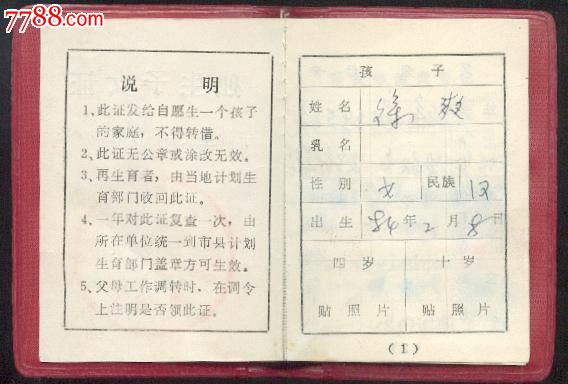 7788.com
说明
1、此证发给自愿生一个孩子
的家庭，不得转借。
2、此证无公章或涂改无效。
3、再生育者，由当地计划生
育部门收回此证。
4、一年对此证复查一次，由
所在单位统一到市县计划
生育部门盖章方可生效。
5、父母工作调转时，在调令
上注明是否领此证。
孩子
姓名 徐爽
乳名
性别 女 民族 汉
出生 84年2月8日
四岁 十岁
贴照片 贴照片
(1)